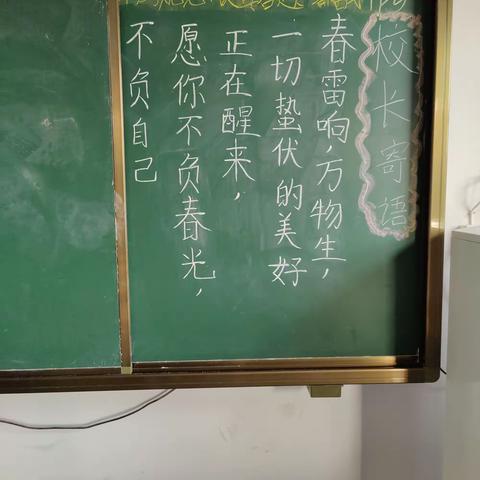 校长寄语
春雷响，万物生，
一切蛰伏的美好
正在醒来，
愿你不负春光，
不负自己